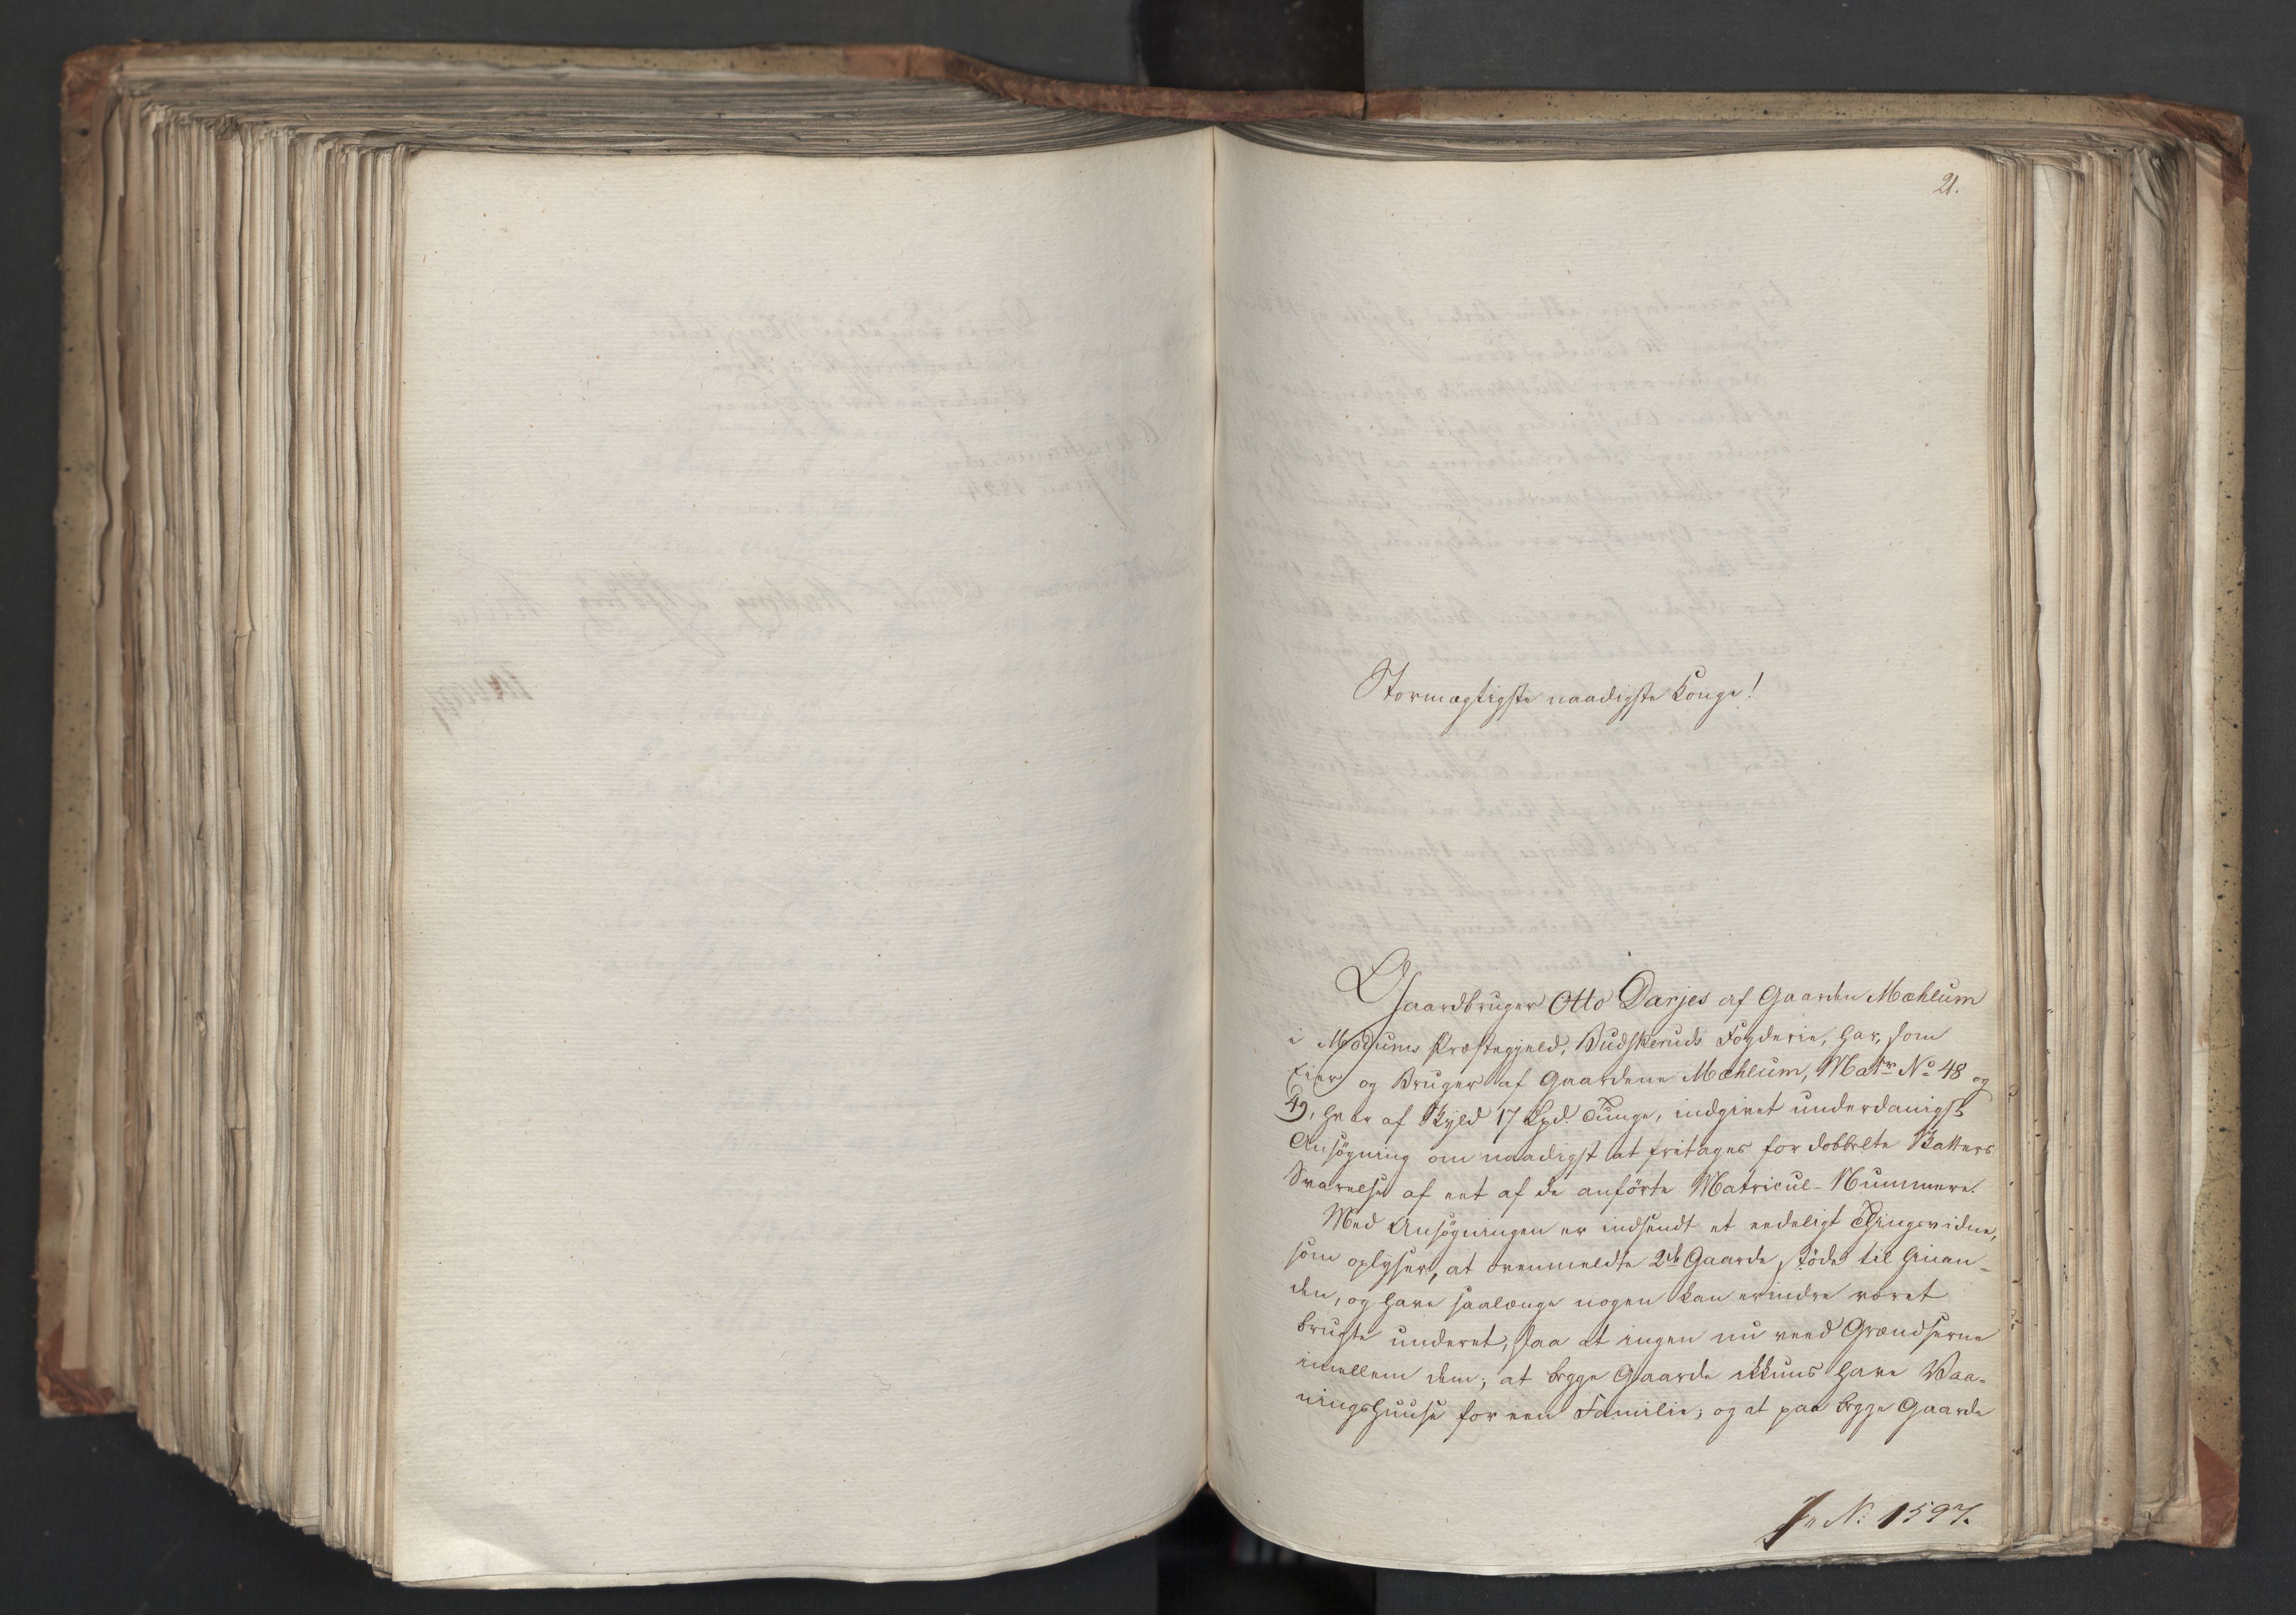 21.
Stormægtigste naadigste Konge!
Gaardbruger Otto Darjes af Gaarden Mæhlum
i Modums Præstegjeld, Budskeruds Fogderie, har, som
Eier og Bruger af Gaardene Mæhlum, Matr No 48 og
49, hver af Skyld 17 Lpd. Tunge, indgivet underdanigst
Ansögning om naadigst at fritages for dobbelte Skatters
Svarelse af eet af de anförte Matricul-Nummere.
Med Ansögningen er indsendt et eedeligt Thingsvidne,
som oplyser, at ovenmeldte 2de Gaarde støde til hinan-
den, og have saalænge nogen kan erindre været
brugte undereet, saa at ingen nu veed Grændserne
imellem dem; at begge Gaarde ikkuns have Vaa-
ningshuuse for een Familie; og at paa begge Gaarde
Jn No 1597.